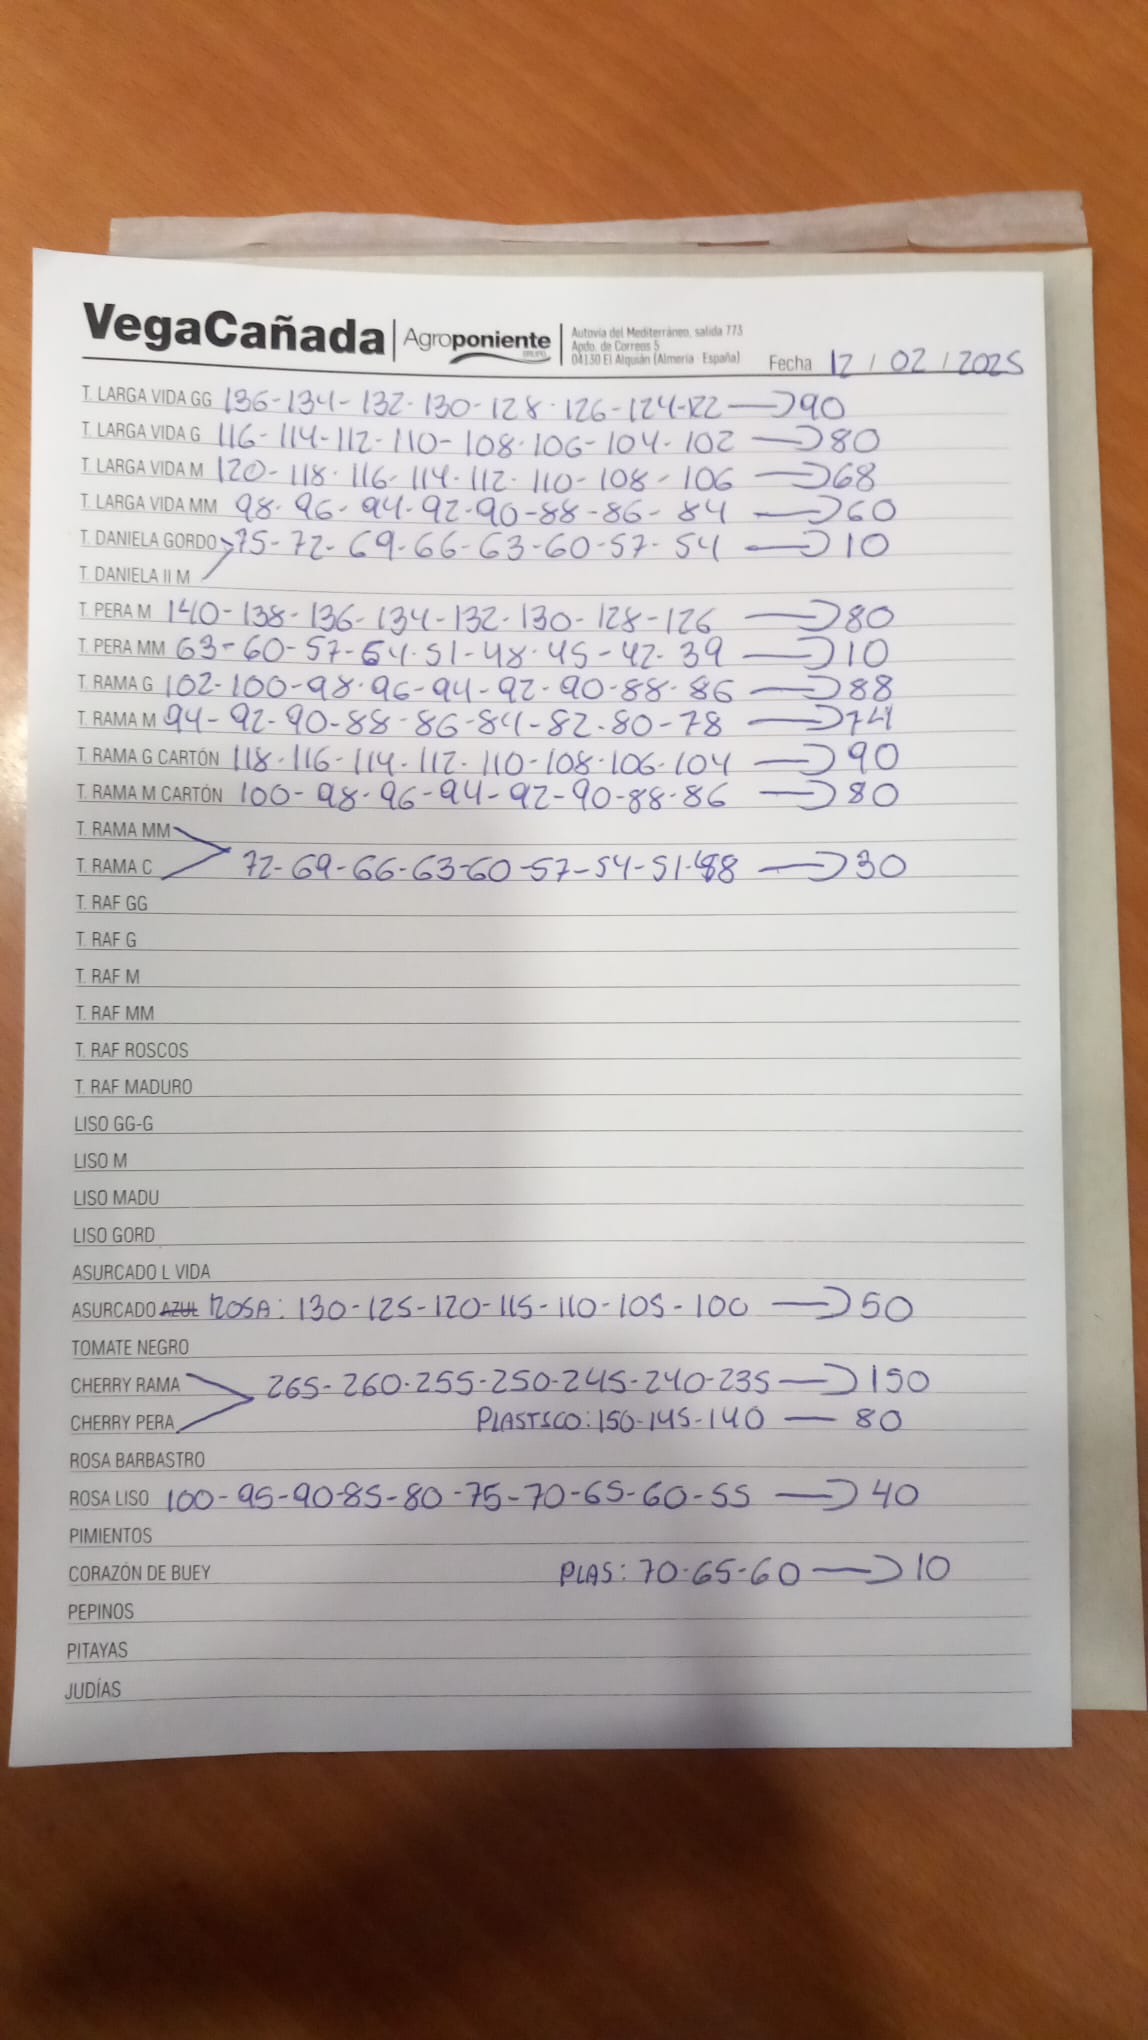 VegaCañada Agroponiente GRUPO
Autovía del Mediterráneo, salida 773
Apdo. de Correos 5
04130 El Alquián (Almería - España)
Fecha 12 / 02 / 2025
T. LARGA VIDA GG 136-134-132-130-128-126-124-122 → 90
T. LARGA VIDA G 116-114-112-110-108-106-104-102 → 80
T. LARGA VIDA M 120-118-116-114-112-110-108-106 → 68
T. LARGA VIDA MM 98-96-94-92-90-88-86-84 → 60
T. DANIELA GORDO 75-72-69-66-63-60-57-54 → 10
T. DANIELA II M
T. PERA M 140-138-136-134-132-130-128-126 → 80
T. PERA MM 63-60-57-54-51-48-45-42-39 → 10
T. RAMA G 102-100-98-96-94-92-90-88-86 → 88
T. RAMA M 94-92-90-88-86-84-82-80-78 → 74
T. RAMA G CARTÓN 118-116-114-112-110-108-106-104 → 90
T. RAMA M CARTÓN 100-98-96-94-92-90-88-86 → 80
T. RAMA MM
T. RAMA C 72-69-66-63-60-57-54-51-48 → 30
T. RAF GG
T. RAF G
T. RAF M
T. RAF MM
T. RAF ROSCOS
T. RAF MADURO
LISO GG-G
LISO M
LISO MADU
LISO GORD
ASURCADO L VIDA
ASURCADO AZUL ROSA: 130-125-120-115-110-105-100 → 50
TOMATE NEGRO
CHERRY RAMA 265-260-255-250-245-240-235 → 150
CHERRY PERA PLASTICO: 150-145-140 — 80
ROSA BARBASTRO
ROSA LISO 100-95-90-85-80-75-70-65-60-55 → 40
PIMIENTOS
CORAZÓN DE BUEY PLAS: 70-65-60 → 10
PEPINOS
PITAYAS
JUDÍAS